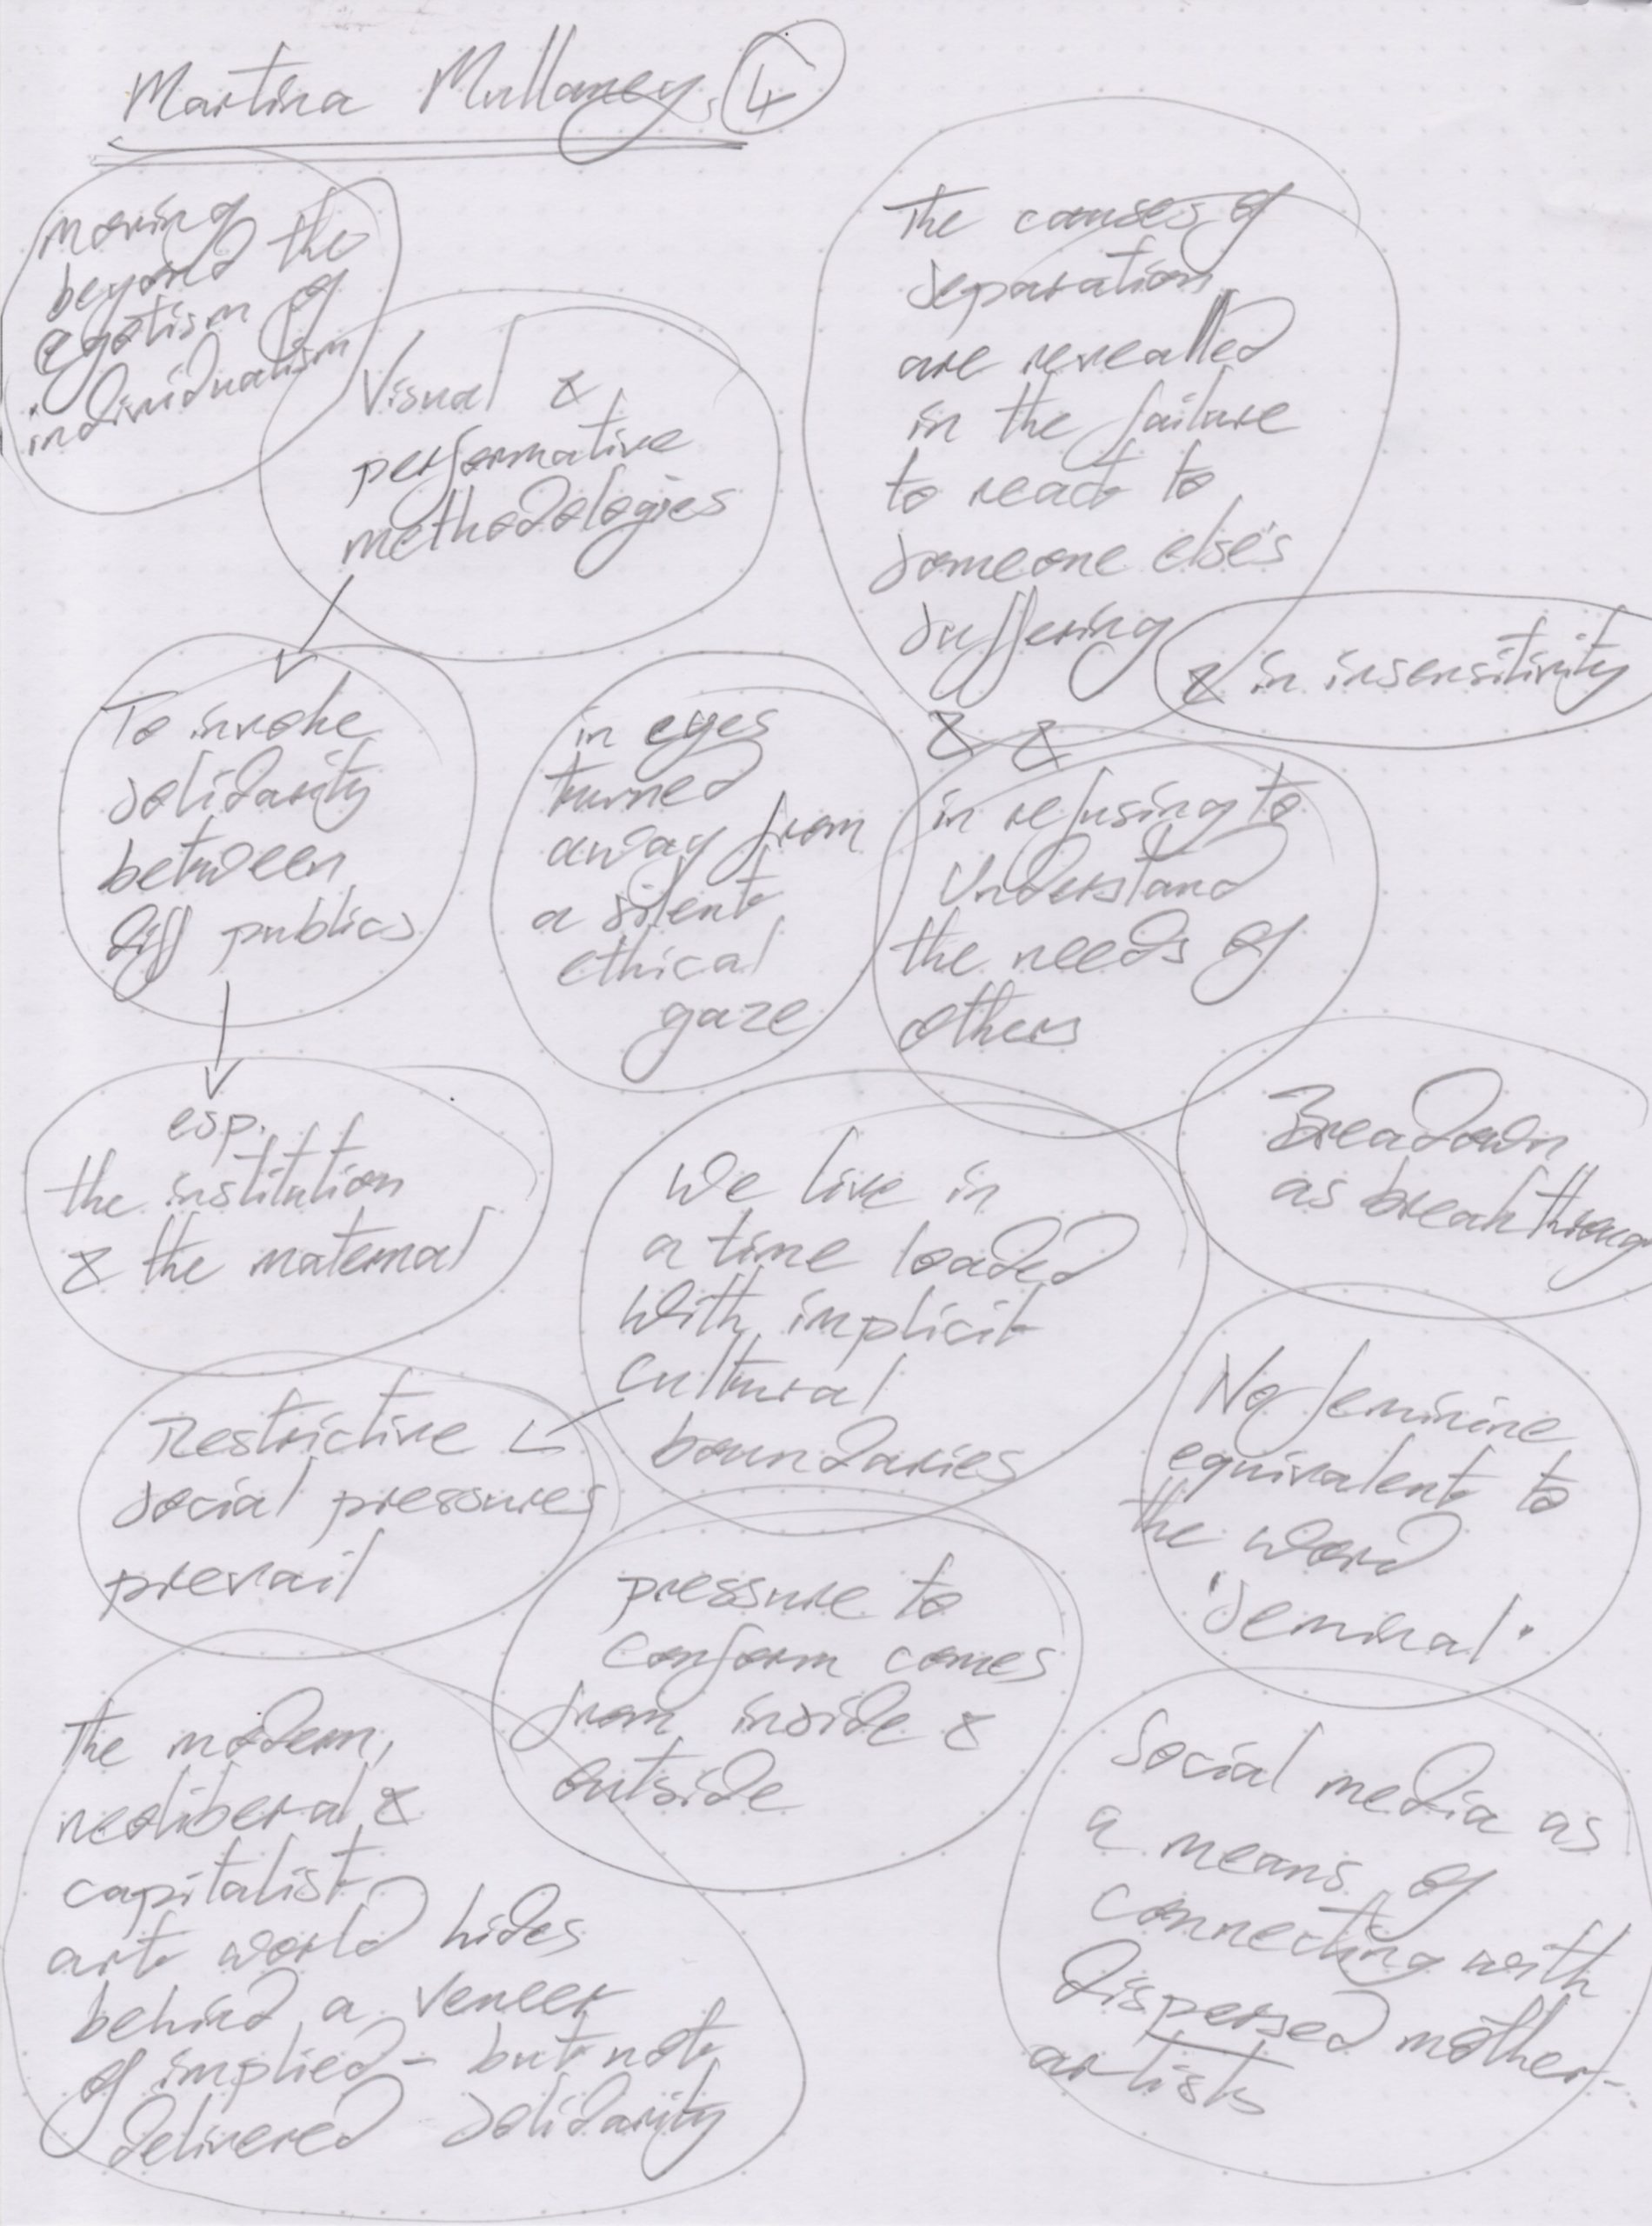 Martina Mullaney, 4
moving
beyond the
egotism of
individualism
Visual &
performative
methodologies
To invoke
solidarity
between
diff publics
esp.
the institution
& the maternal
The causes of
separation
are revealled
in the failure
to react to
someone else's
suffering
& in insensitivity
& &
in eyes
turned
away from
a silent
ethical
gaze
in refusing to
Understand
the needs of
others
We live in
a time loaded
with implicit
cultural
boundaries
Restrictive
social pressures
prevail
pressure to
conform comes
from inside &
outside
Breadown
as breakthroug
No feminine
equivalent to
the word
'seminal'
The modern,
neoliberal &
capitalist
art world hides
behind a veneer
of implied - but not
delivered solidarity
Social media as
a means of
connecting with
dispersed mother-
artists